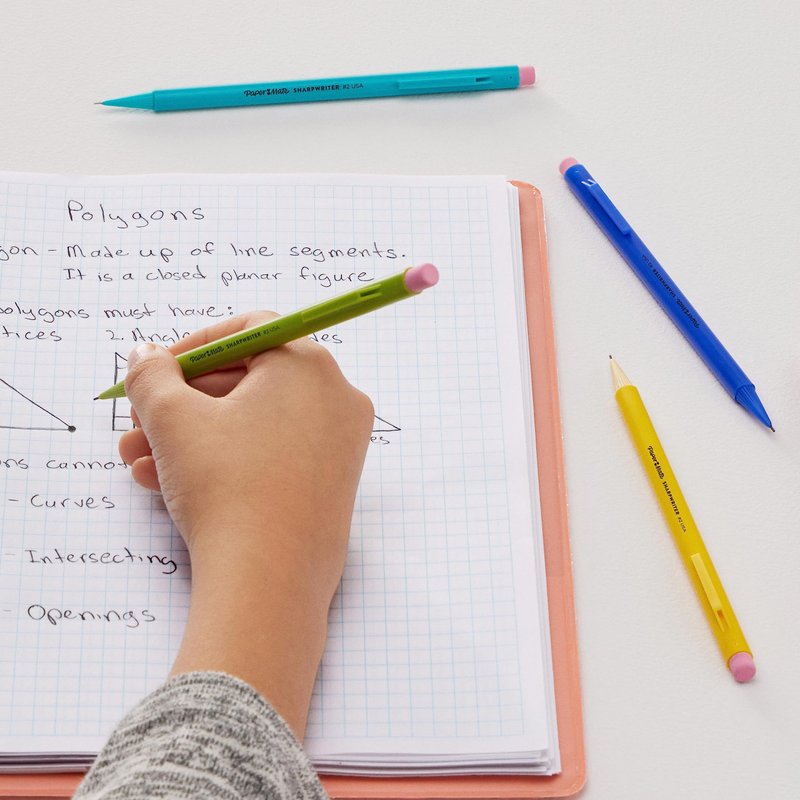 Paper Mate SHARPWRITER #2 USA
Polygons
gon - Made up of line segments.
It is a closed planar figure
polygons must have:
tices 2. Angl des
Paper Mate SHARPWRITER #2 USA
es
ons cannot
- Curves
- Intersecting
- Openings
Paper Mate SHARPWRITER #2 USA
Paper Mate SHARPWRITER #2 USA